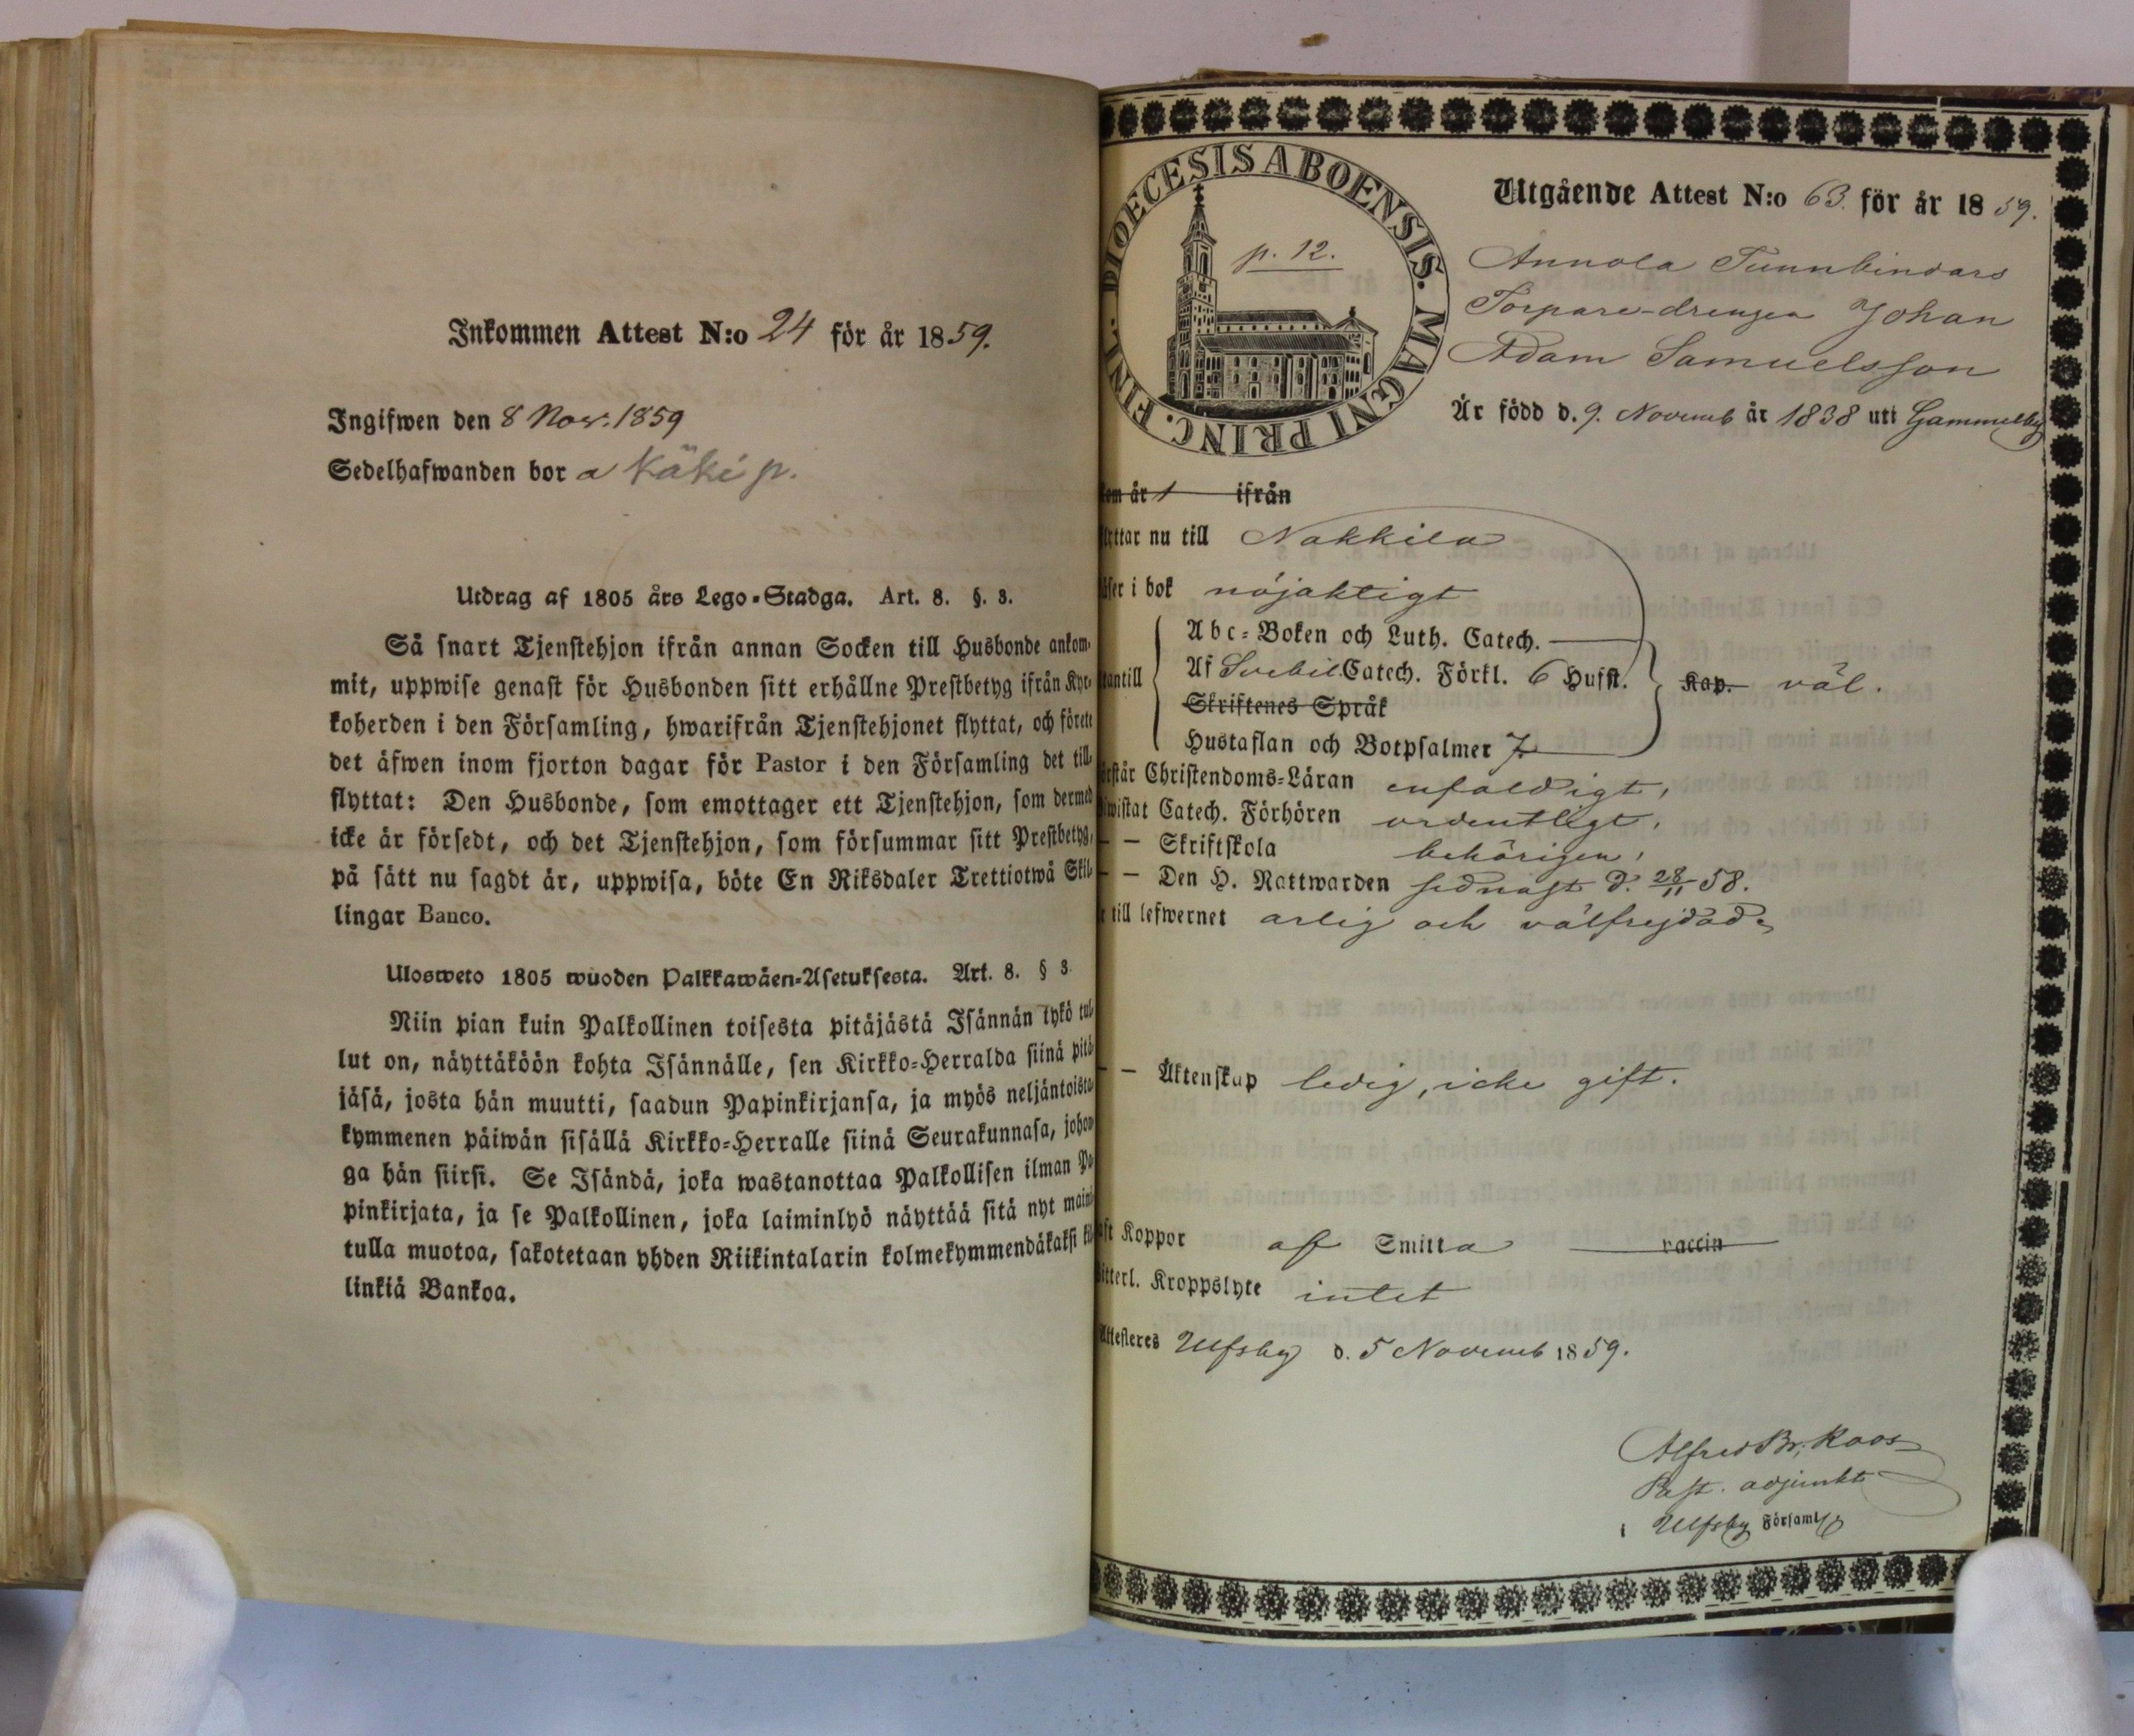 Inkommen Attest N:o 24 för år 1859.
Ingifwen den 8 Nov. 1859
Sedelhafwanden bor a Käki p.
Utdrag af 1805 års Lego-Stadga. Art. 8. §. 3.
Så snart Tjenstehjon ifrån annan Socken till Husbonde ankom-
mit, uppwise genast för Husbonden sitt erhållne Prestbetyg ifrån Kyr-
koherden i den Församling, hwarifrån Tjenstehjonet flyttat, och förete
det äfwen inom fjorton dagar för Pastor i den Församling det till-
flyttat: Den Husbonde, som emottager ett Tjenstehjon, som dermed
icke är försedt, och det Tjenstehjon, som försummar sitt Prestbetyg,
på sätt nu sagdt är, uppwisa, böte En Riksdaler Trettiotwå Skil-
lingar Banco.
Ulosweto 1805 wuoden Palkkawäen-Asetuksesta. Art. 8. § 3.
Niin pian kuin Palkollinen toisesta pitäjästä Isännän lykö tul-
lut on, näyttäköön kohta Isännälle, sen Kirkko-Herralda siinä pitä-
jäsä, josta hän muutti, saadun Papinkirjansa, ja myös neljäntoista-
kymmenen päiwän sisällä Kirkko-Herralle siinä Seurakunnasa, johon-
ga hän siirsi. Se Isändä, joka wastanottaa Palkollisen ilman Pa-
pinkirjata, ja se Palkollinen, joka laiminlyö näyttää sitä nyt maini-
tulla muotoa, sakotetaan yhden Riikintalarin kolmekymmendäkaksi kil-
linkiä Bankoa.
DIOECESIS ABOENSIS. MAGNI PRINC. FINL.
p. 12.
Utgående Attest N:o 63. för år 1859.
Annola Tunnbindars
Torpare-drengen Johan
Adam Samuelsson
Är född d. 9. Novemb år 1838 uti Gammelby
kom år 1 ifrån
flyttar nu till Nakkila
läser i bok nöjaktigt
Abc-Boken och Luth. Catech.
utantill Af Svebil. Catech. Förkl. 6 Hufst. Kap. väl.
Skriftenes Språk
Hustaflan och Botpsalmer 7
förstår Christendoms-Läran enfaldigt,
bewistat Catech. Förhören ordentligt,
— — Skriftskola behörigen,
— — Den H. Nattwarden sednast d. 28/11 58.
r till lefwernet ärlig och välfrejdad,
— — Äktenskap ledig, icke gift.
haft Koppor af Smitta vaccin
Witterl. Kroppslyte intet
Attesteres Ulfsby d. 5 Novemb 1859.
Alfred Br. Roos
Past. adjunkt
i Ulfsby Församlg